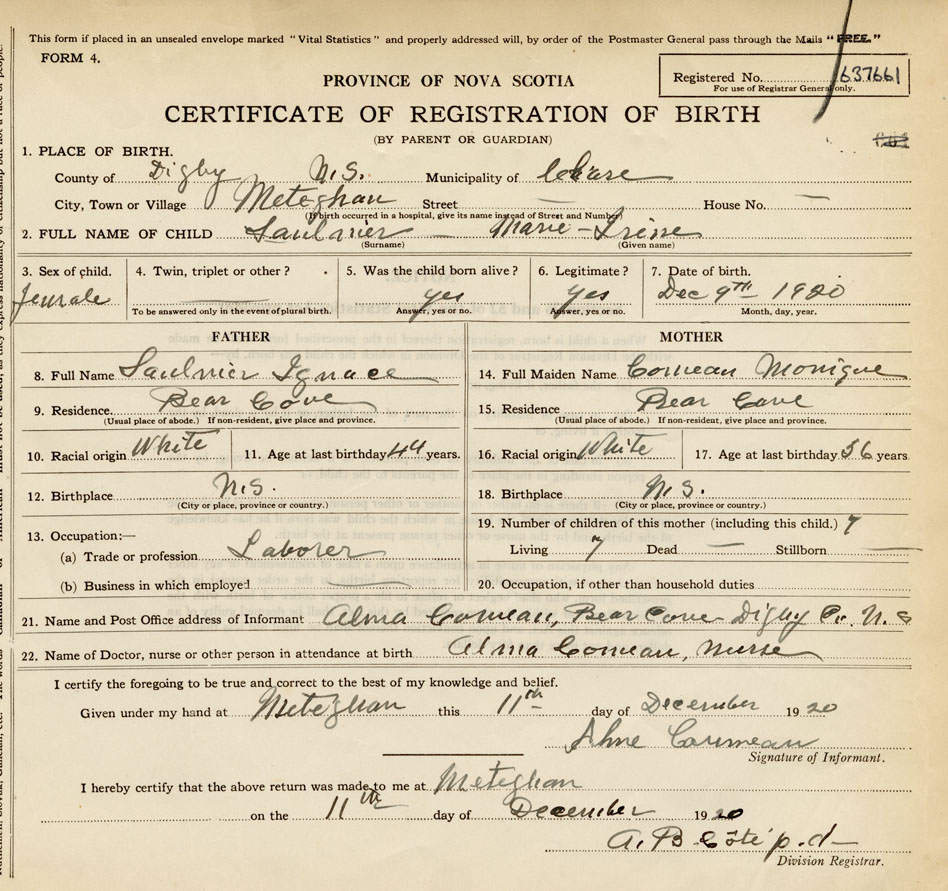 This form if placed in an unsealed envelope marked "Vital Statistics" and properly addressed will, by order of the Postmaster General pass through the Mails "FREE."
FORM 4.
Registered No. 637661
For use of Registrar General only.
PROVINCE OF NOVA SCOTIA
CERTIFICATE OF REGISTRATION OF BIRTH
(BY PARENT OR GUARDIAN)
1. PLACE OF BIRTH.
County of Digby N.S. Municipality of Clare
City, Town or Village Meteghan Street — House No. —
(If birth occurred in a hospital, give its name instead of Street and Number)
2. FULL NAME OF CHILD Saulnier — Marie-Irene
(Surname) (Given name)
3. Sex of child. 4. Twin, triplet or other? 5. Was the child born alive? 6. Legitimate? 7. Date of birth.
Female — yes yes Dec 9th 1920
To be answered only in the event of plural birth. Answer, yes or no. Answer, yes or no. Month, day, year.
FATHER MOTHER
8. Full Name Saulnier Ignace 14. Full Maiden Name Comeau Monique
9. Residence. Bear Cove 15. Residence Bear Cove
(Usual place of abode.) If non-resident, give place and province. (Usual place of abode.) If non-resident, give place and province.
10. Racial origin White 11. Age at last birthday 44 years. 16. Racial origin White 17. Age at last birthday 36 years.
12. Birthplace N.S. 18. Birthplace N.S.
(City or place, province or country.) (City or place, province or country.)
13. Occupation:— 19. Number of children of this mother (including this child.) 7
(a) Trade or profession Laborer Living 7 Dead — Stillborn —
(b) Business in which employed — 20. Occupation, if other than household duties
21. Name and Post Office address of Informant Alma Comeau, Bear Cove Digby Co. N.S
22. Name of Doctor, nurse or other person in attendance at birth Alma Comeau, nurse
I certify the foregoing to be true and correct to the best of my knowledge and belief.
Given under my hand at Meteghan this 11th day of December 1920
Comeau
Signature of Informant.
I hereby certify that the above return was made to me at Meteghan
on the 11th day of December 1920
A. B. Côté p.d—
Division Registrar.